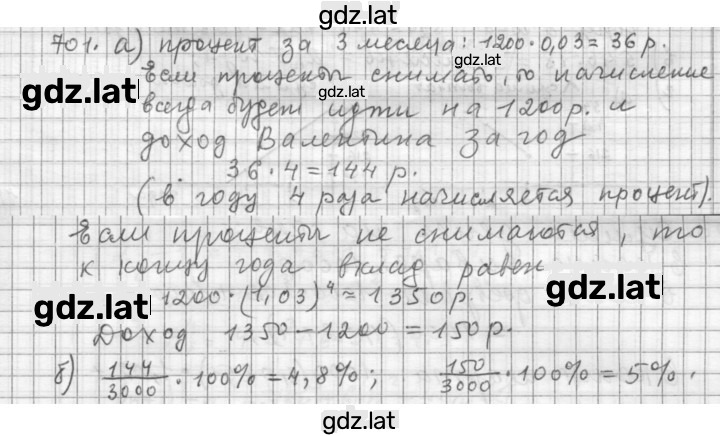 gdz.lat
701. а) процент за 3 месяца: 1200·0,03=36 р.
Если проценты снимать, то начисление
gdz.lat
gdz.lat
всегда будет идти на 1200р. и
доход Валентина за год
36·4=144 р.
(в году 4 раза начисляется процент).
Если проценты не снимаются, то
к концу года вклад равен
gdz.lat
gdz.lat
1200·(1,03)⁴≈1350р.
Доход 1350-1200=150р.
б) 144/3000·100%=4,8%; 150/3000·100%=5%.
gdz.lat